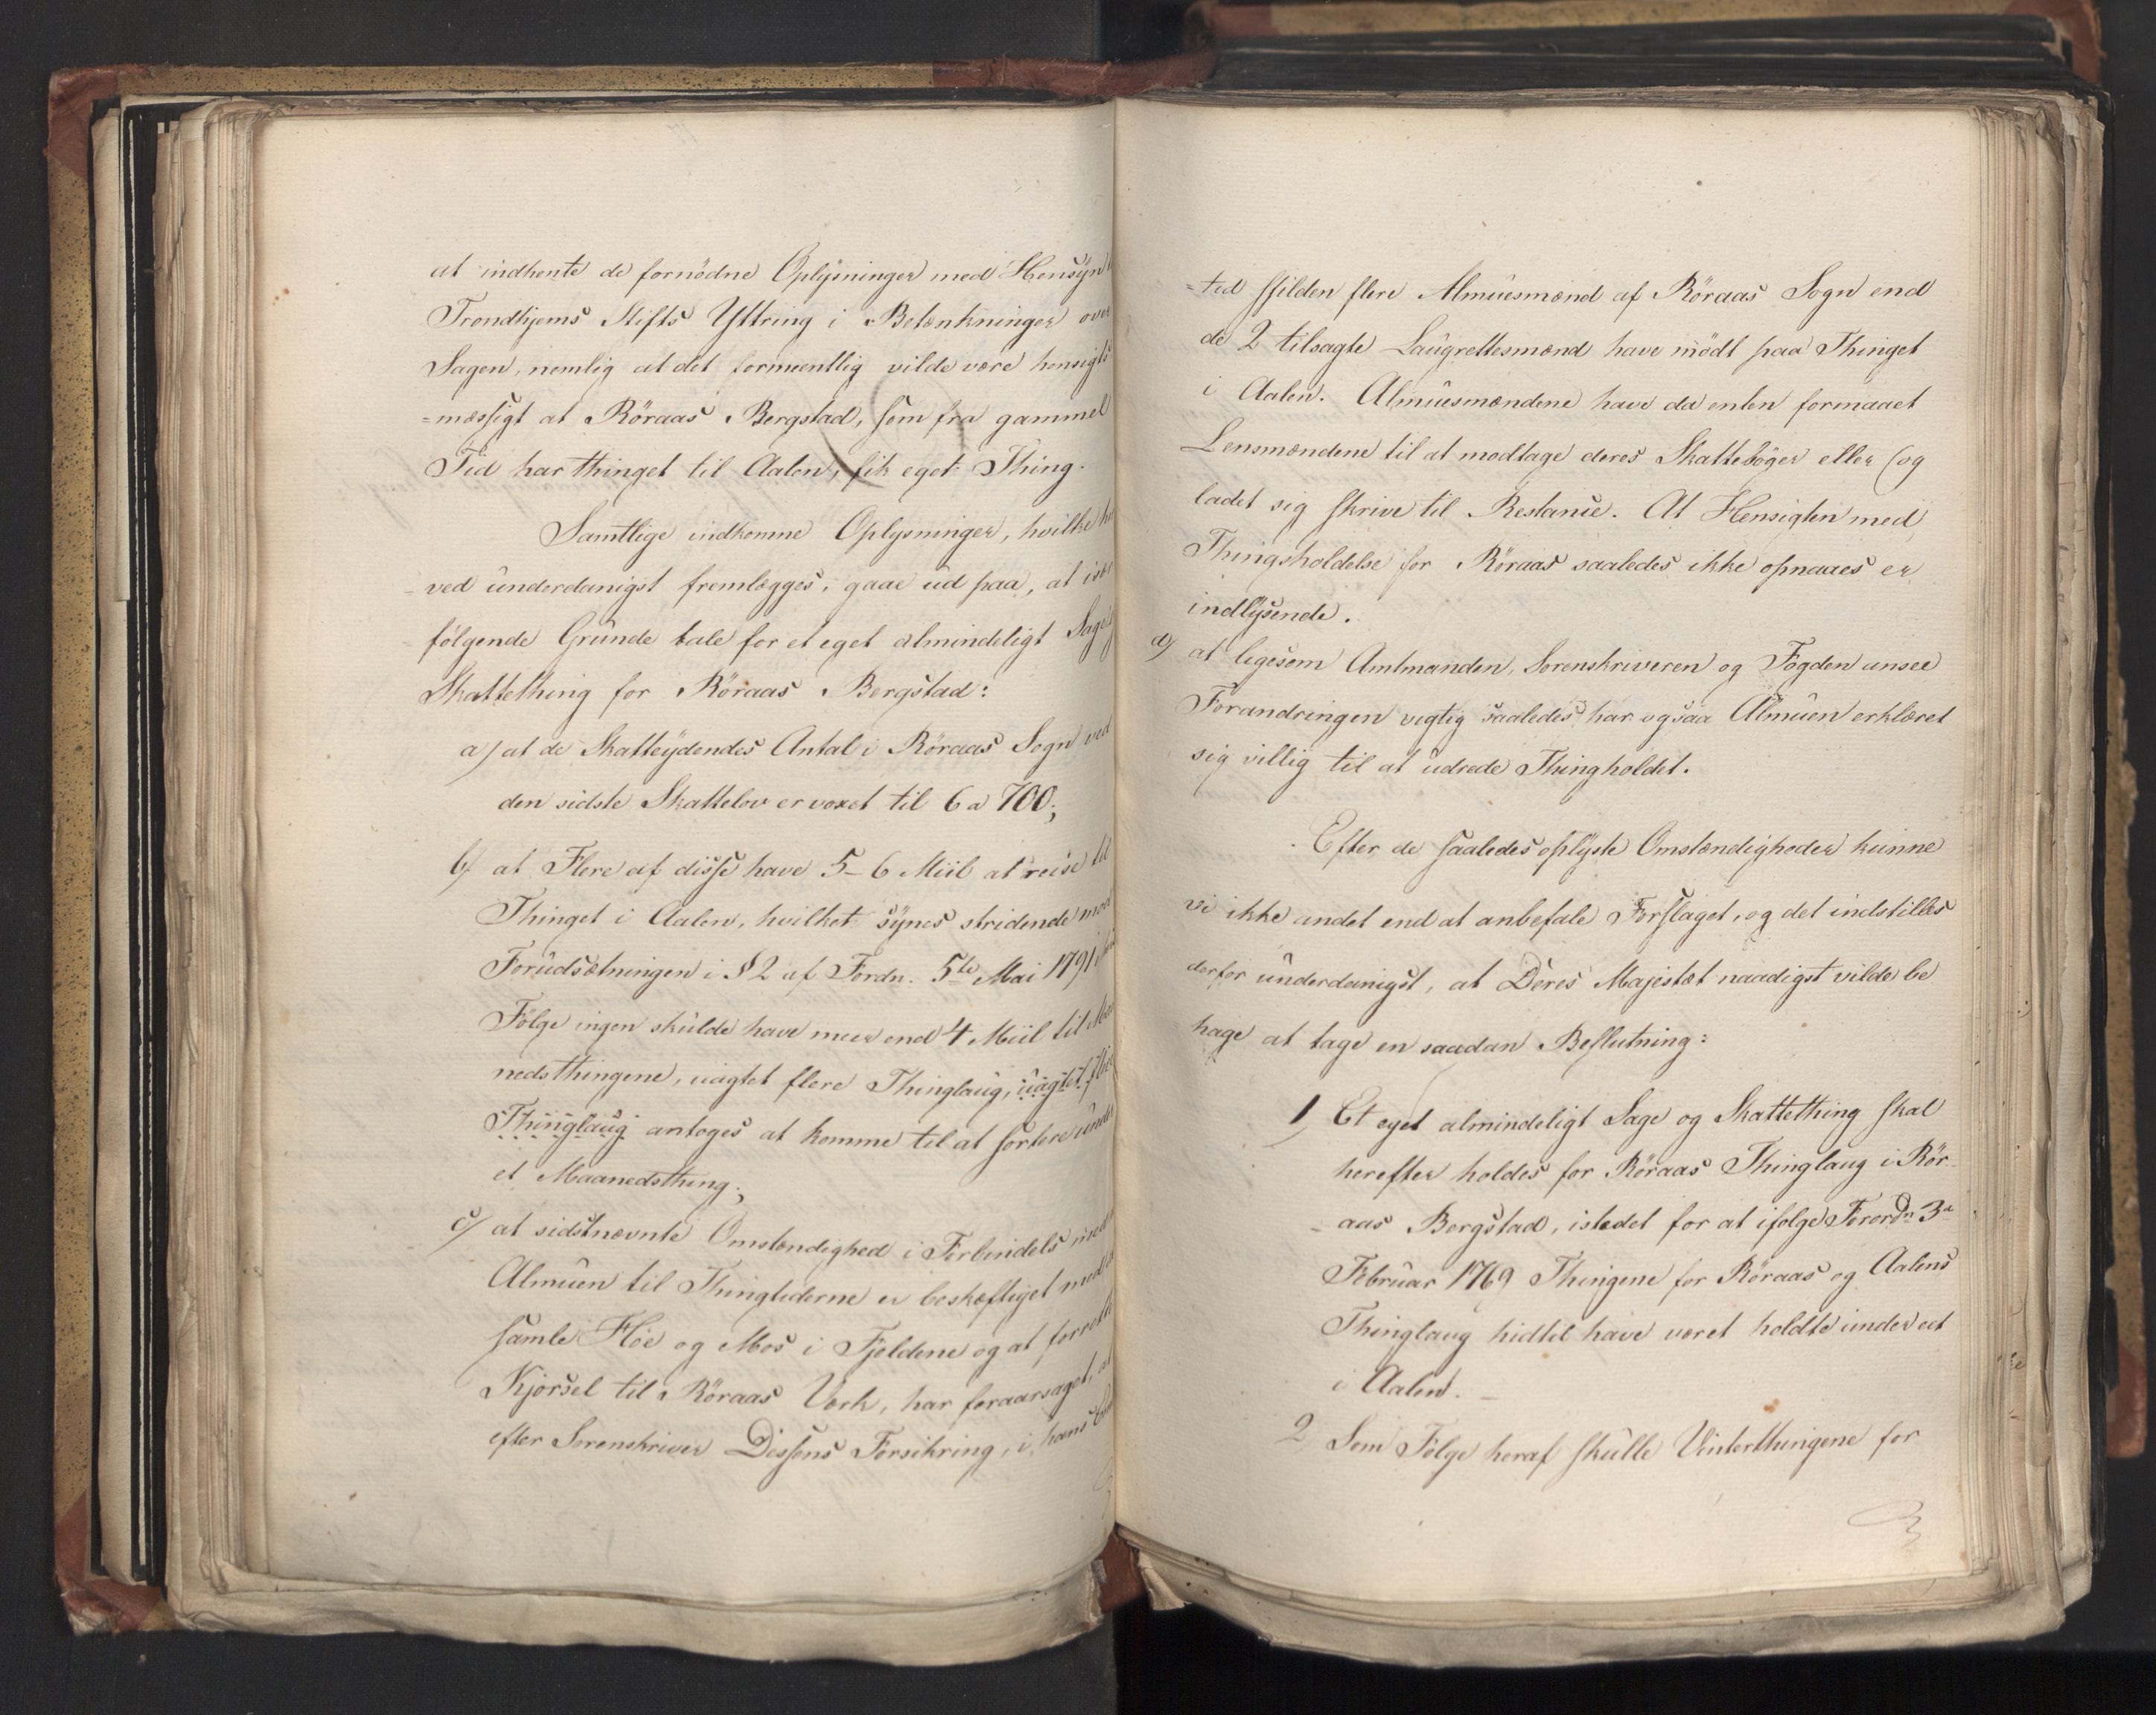 at indhente de fornødne Oplysninger med Hensyn
Trondhjems Stifts Yttring i Betænkninger over
Sagen, nemlig at det formeentlig vilde være hensigts
=mæssigt at Røraas Bergstad, som fra gammel
Tid har thinget til Aalen, fik eget Thing.
Samtlige indkomne Oplysninger, hvilke
ved underdanigst fremlægges, gaae ud paa, at især
følgende Grunde tale for et eget almindeligt
Skattething for Røraas Bergstad:
a) at de Skatteydendes Antal i Røraas Sogn ved
den sidste Skattelov er voxet til 6 a 700;
b) at Flere af disse have 5-6 Miil at reise til
Thinget i Aalen, hvilket synes stridende mod
Forudsætningen i §2 af Fordn. 5te Mai 1791
Følge ingen skulde have meer end 4 Miil til
nedsthingene, uagtet flere Thinglaug, uagtet flere
Thinglaug antoges at komme til at sortere under
et Maanedsthing;
c) at sidstnævnte Omstændighed i Forbindelse med
Almuen til Thingtiderne er beskæftiget med
samle Høe og Mos i Fjeldene og at forrette
Kjørsel til Røraas Værk, har foraarsaget, at
efter Sorenskriver Dissens Forsikring, i hans
=tid sjelden flere Almuesmænd af Røraas Sogn end
de 2 tilsagte Laugrettesmænd have mødt paa Thinget
i Aalen. Almuesmændene have da enten formaaet
Lensmændene til at modtage deres Skattebøger eller (og
ladet sig skrive til Restance. At Hensigten med
Thingsholdelse for Røraas saaledes ikke opnaaes er
indlysende.
d) at ligesom Amtmanden, Sorenskriveren og Fogden ansee
Forandringen vigtig saaledes har ogsaa Almuen erklæret
sig villig til at udrede Thingholdet.
Efter de saaledes oplyste Omstændigheder kunne
vi ikke andet end at anbefale Forslaget, og det indstilles
derfor underdanigst, at Deres Majestæt naadigst vilde be
hage at tage en saadan Beslutning:
1, Et eget almindeligt Sage og Skattething skal
herefter holdes for Røraas Thinglaug i Rør-
aas Bergstad, istedet for at ifølge Forordn 3die
Februar 1769 Thingene for Røraas og Aalens
Thinglaug hidtil have været holdte under eet
i Aalen.
2 Som Følge heraf skulle Vinterthingene for